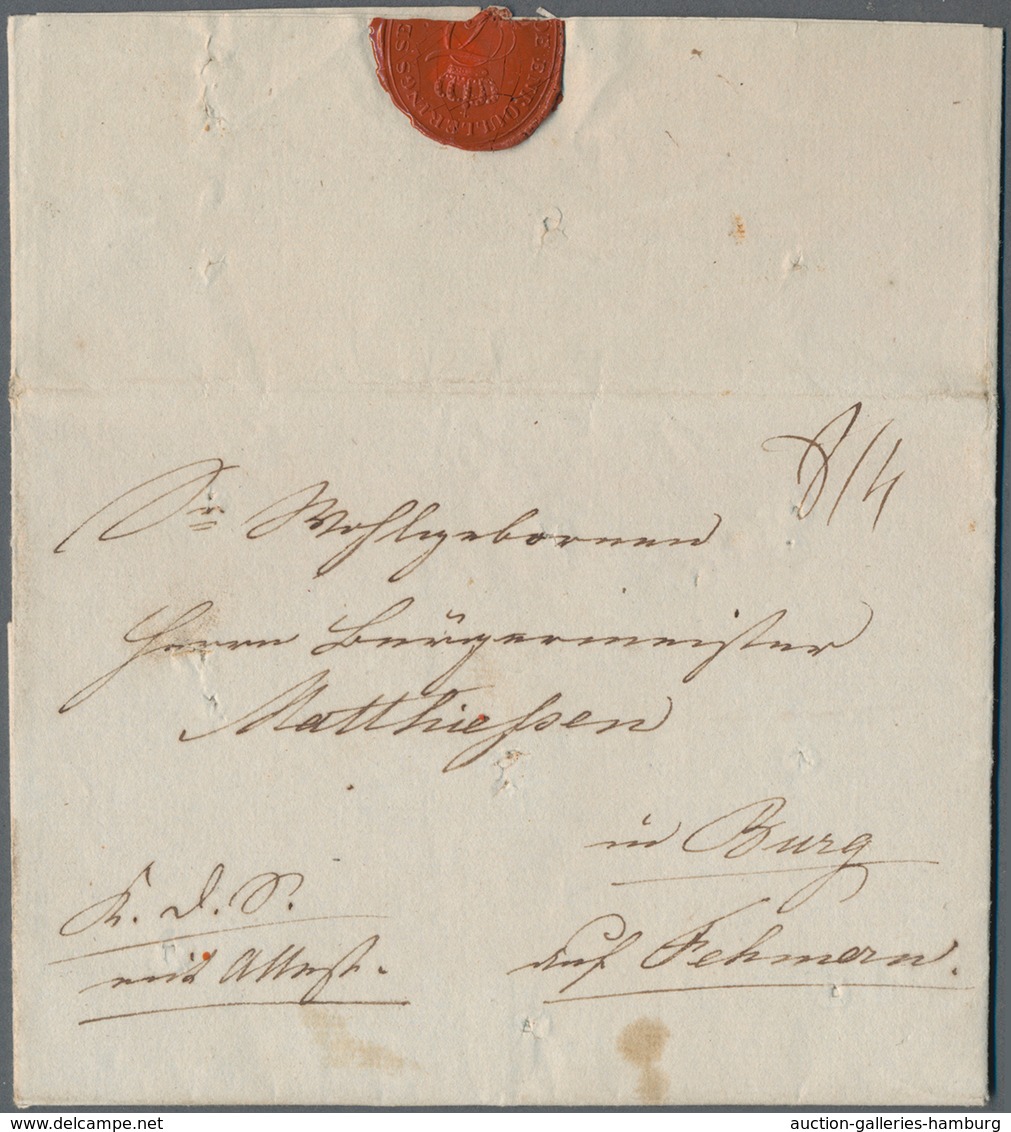 ENROULLERINGS
8/4
Sr Wohlgebornen
Herrn Bürgermeister
Matthießen
in Burg
K. D. S.
auf Fehmern.
mit Attest.
www.delcampe.net
auction-galleries-hamburg